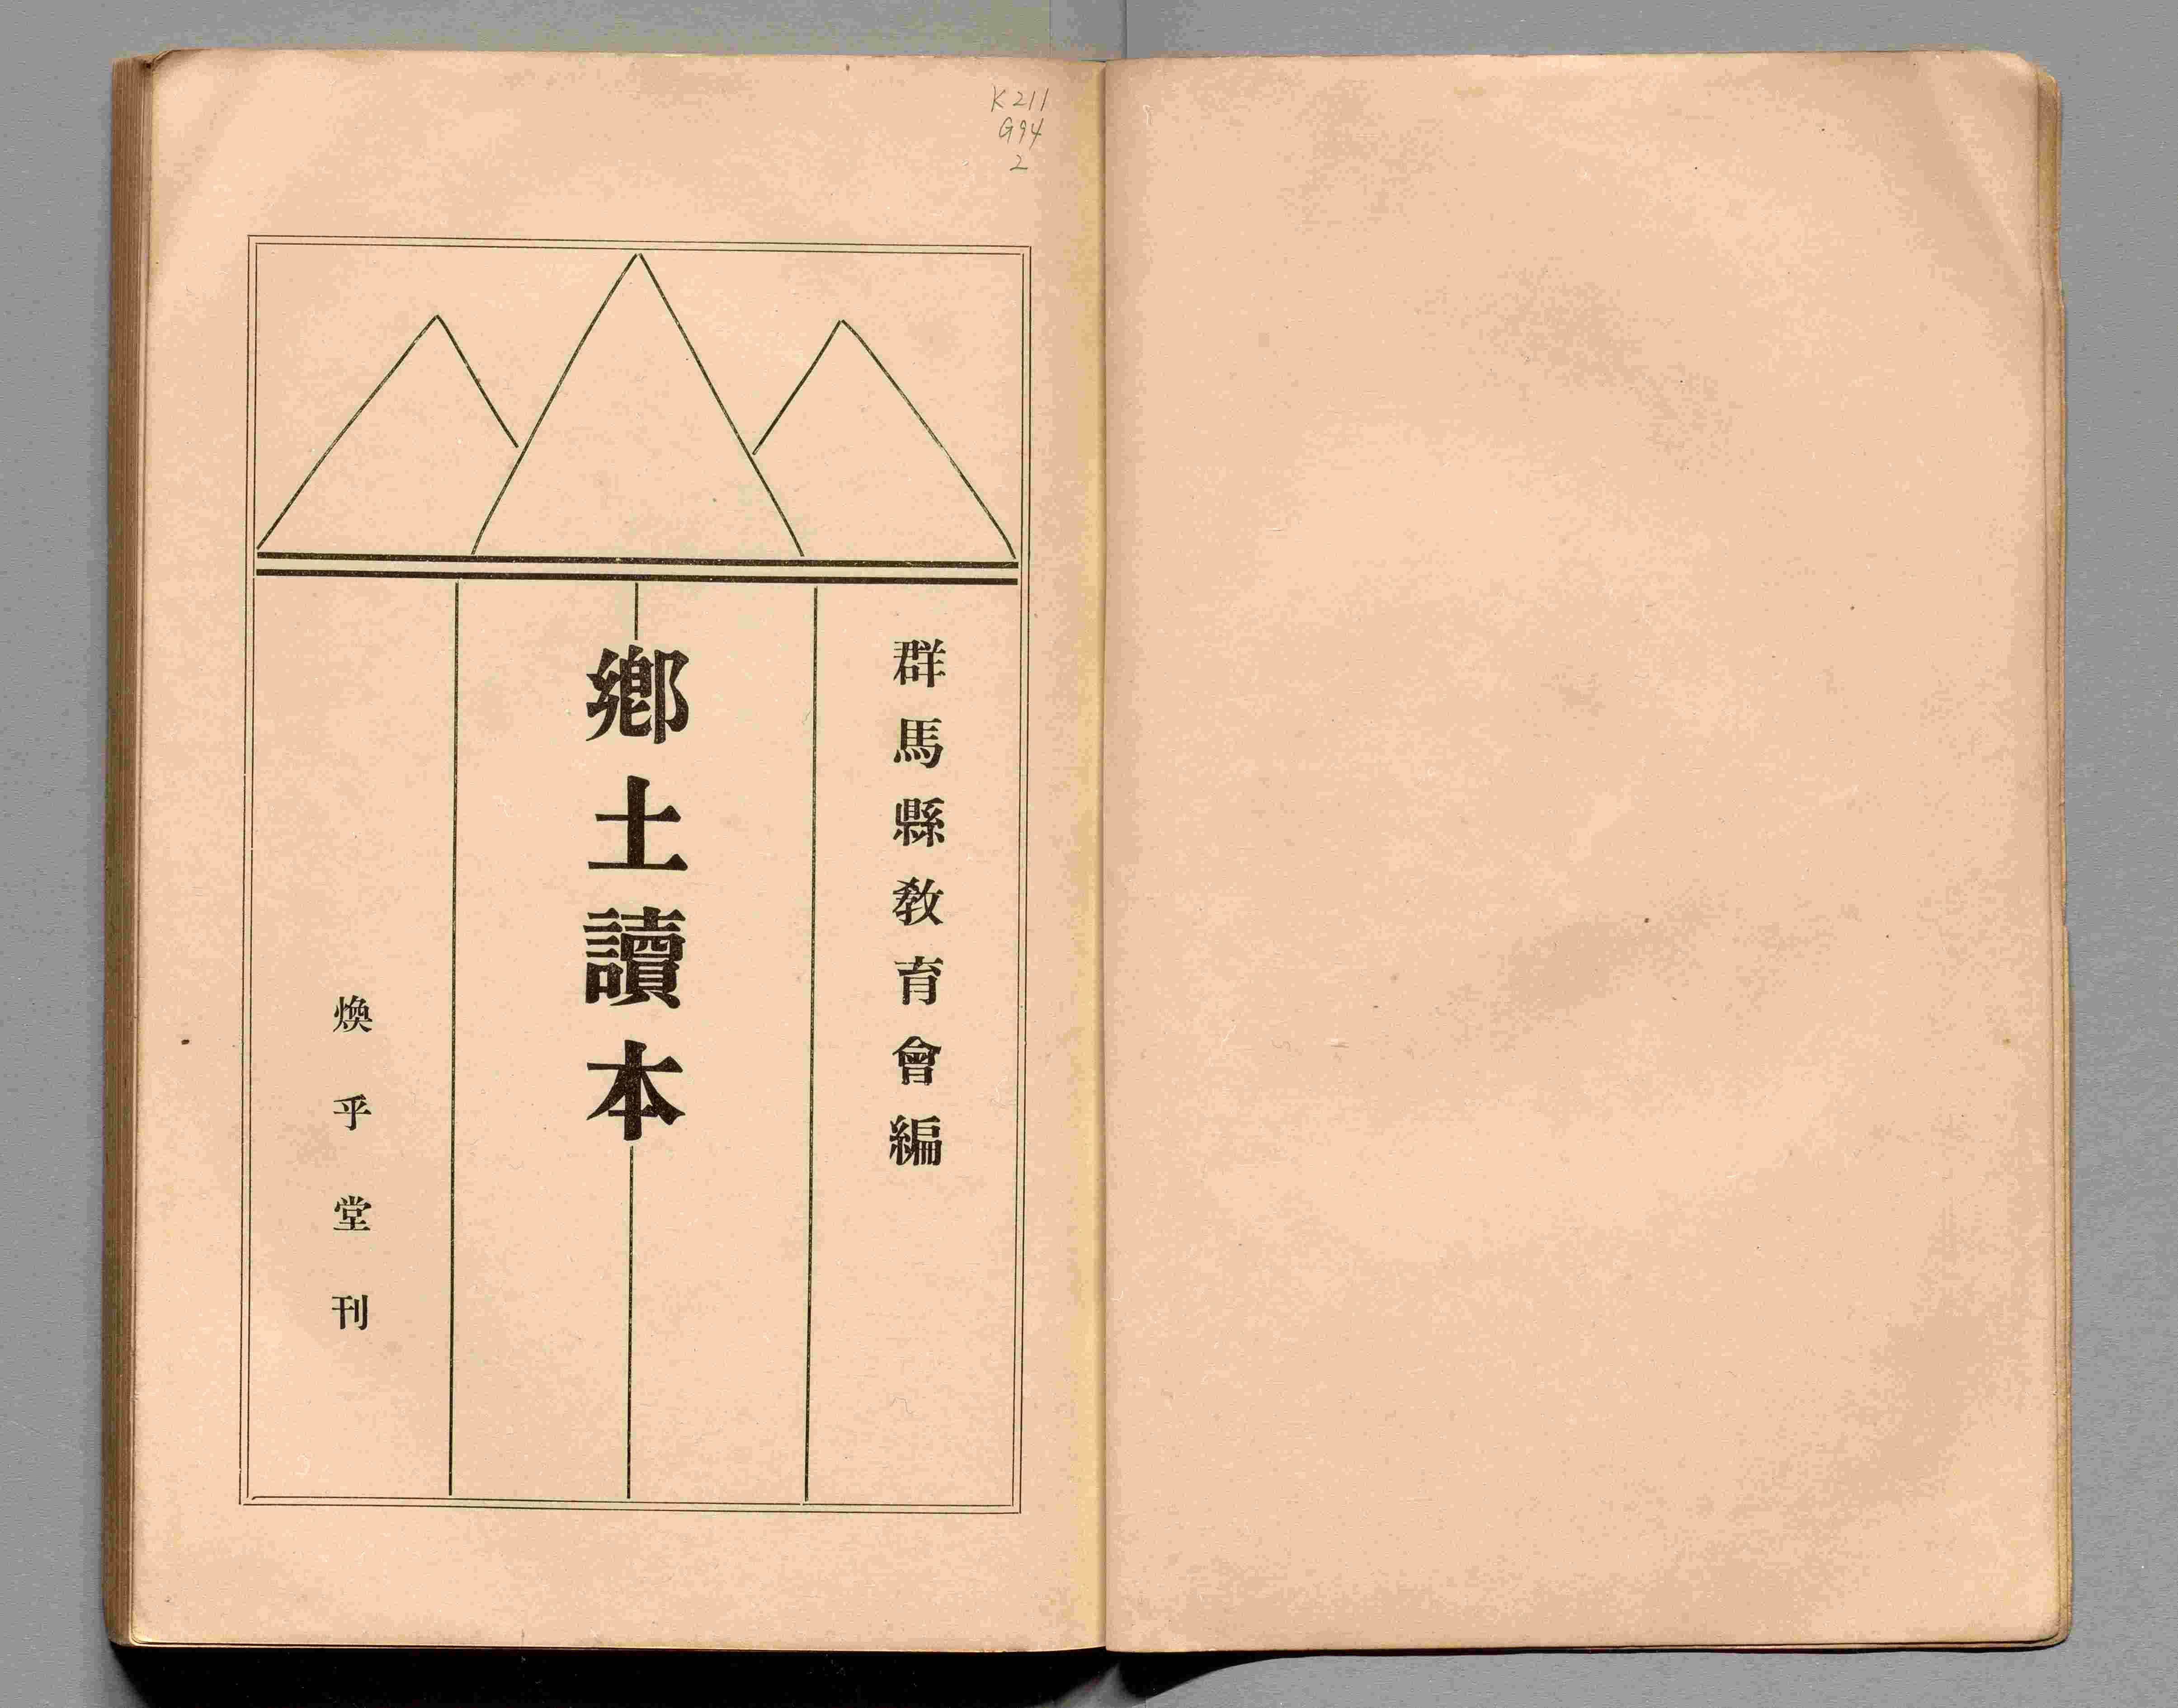 K211
G94
2
群馬縣教育會編
鄕土讀本
煥乎堂刊